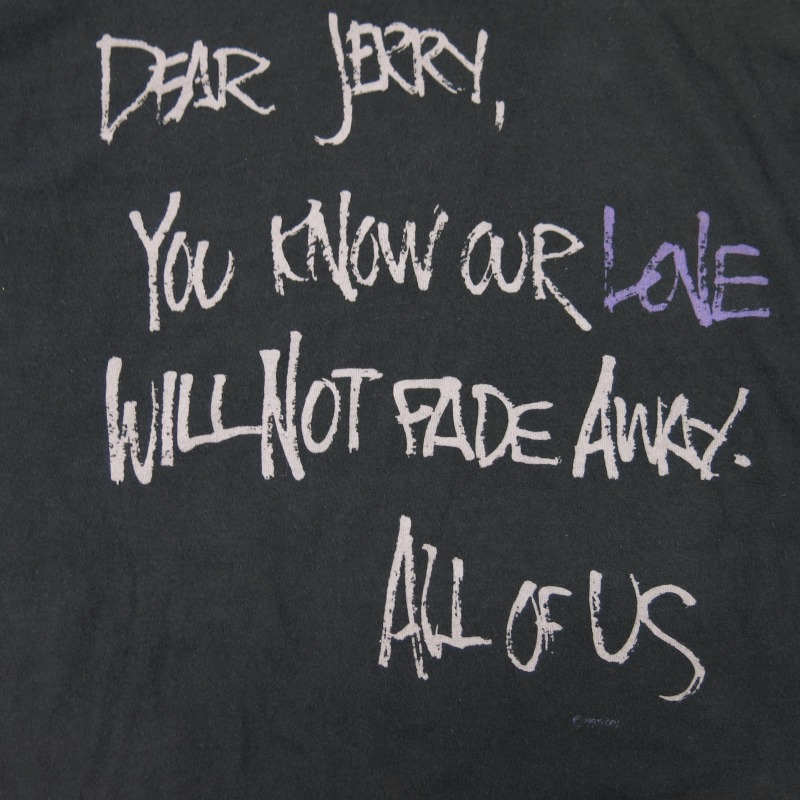 DEAR JERRY,
YOU KNOW OUR LOVE
WILL NOT FADE AWAY.
ALL OF US